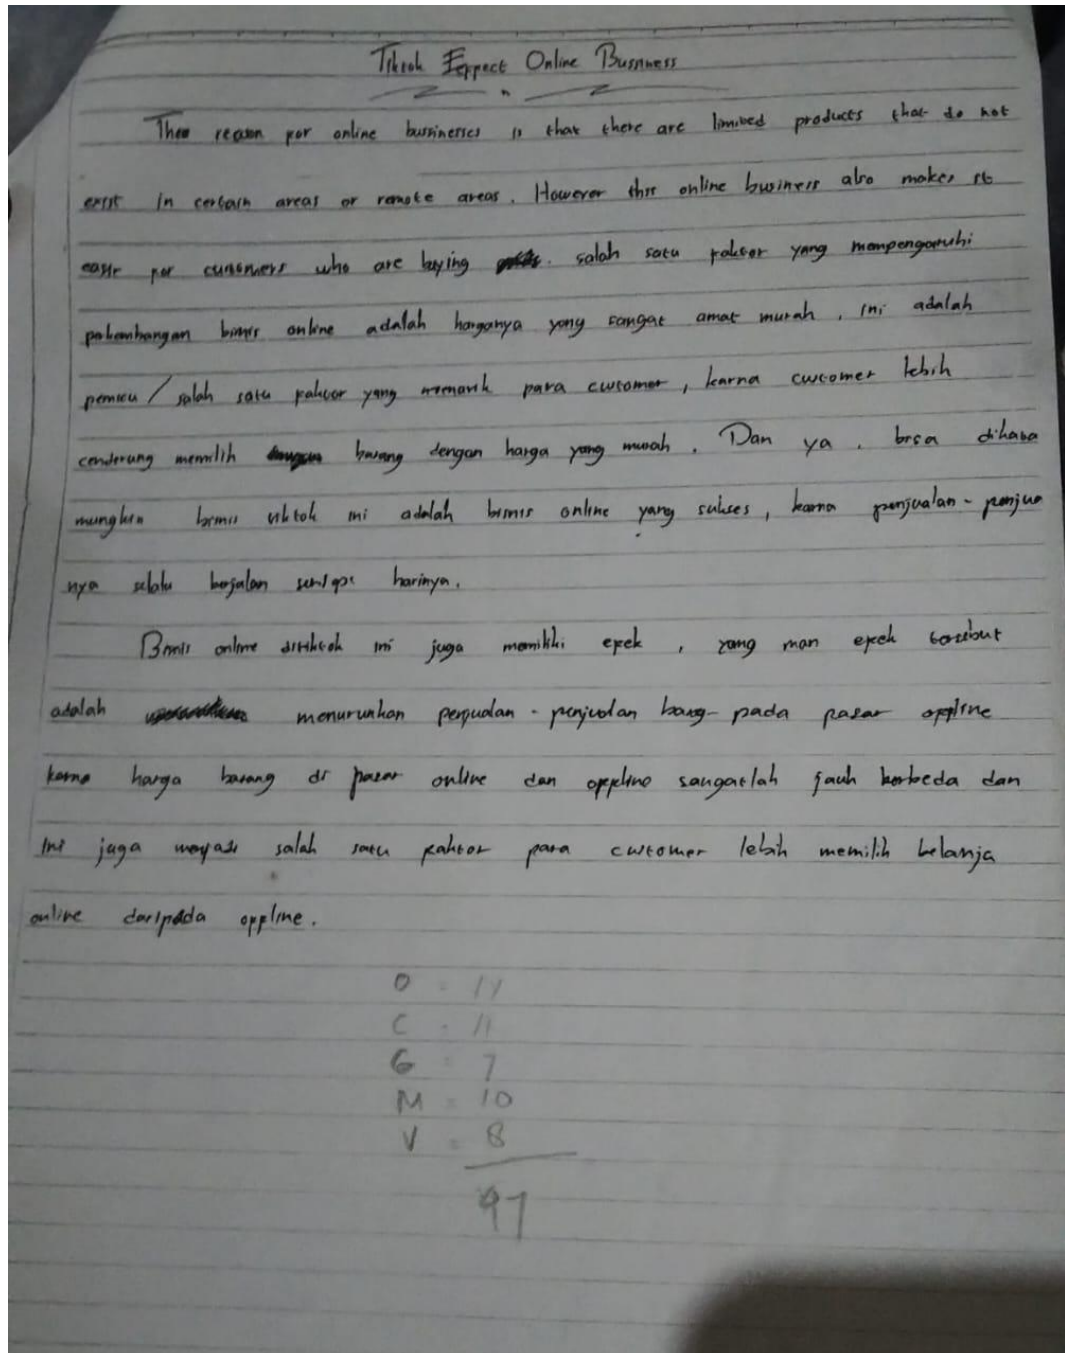 Tiktok Eppect Online Bussness
Thee reason por online bussinesses is that there are limited products that do not
exist in certain areas or remote areas. However this online business also makes it
easir por cunsomers who are buying salah satu paktor yang mempengaruhi
pekembangan bisnis online adalah harganya yang sangat amat murah, ini adalah
pemicu / salah satu paktor yang menarik para customer, karna customer lebih
cenderung memilih barang dengan harga yang murah. Dan ya, bisa dikata
mungkin bisnis tiktok ini adalah bisnis online yang sukses, karna penjualan-penjua
nya selalu berjalan setiap harinya.
Bisnis online ditiktok ini juga memiliki epek, yang man epek tersebut
adalah menurunkan penjualan-penjualan pada pasar oppline
karna harga barang di pasar online dan oppline sangatlah jauh berbeda dan
ini juga salah satu paktor para customer lebih memilih belanja
online daripada oppline.
O = 11
C = 11
G = 7
M = 10
V = 8
47